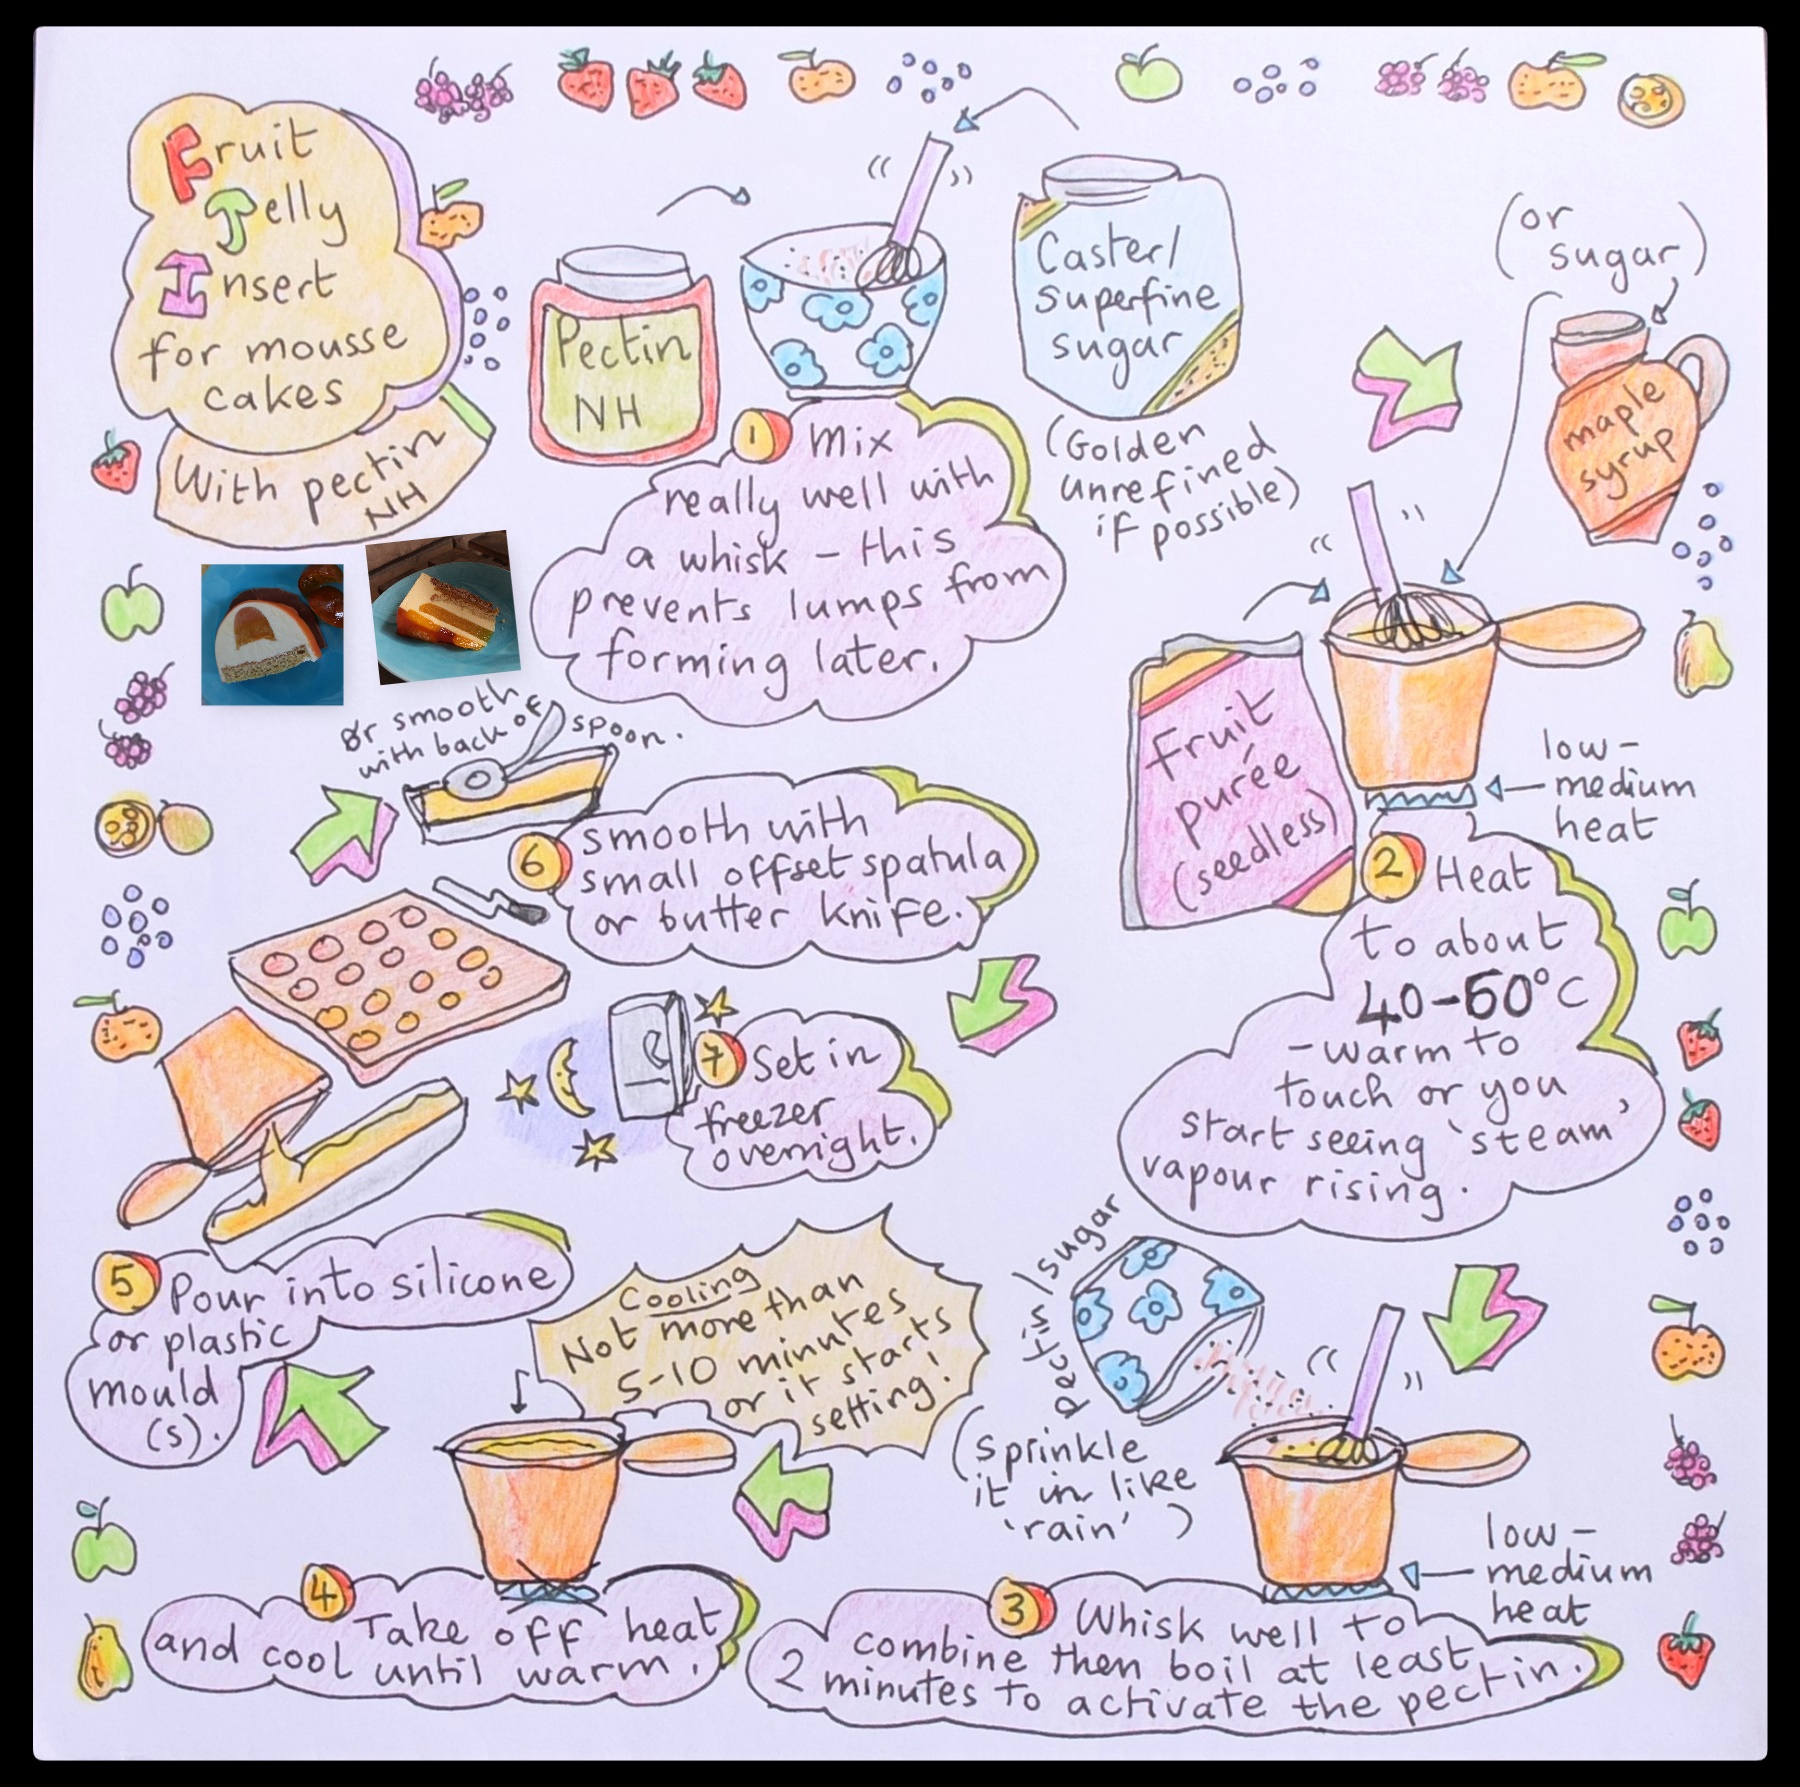 Fruit
Jelly
Insert
for mousse
cakes
With pectin
NH
Pectin
NH
Caster/
superfine
sugar
(Golden
unrefined
if possible)
1 Mix
really well with
a whisk - this
prevents lumps from
forming later.
(or
sugar)
maple
syrup
Fruit
purée
(seedless)
low-
medium
heat
2 Heat
to about
40-60°C
- warm to
touch or you
start seeing 'steam'
vapour rising.
pectin/sugar
(sprinkle
it in like
'rain')
low-
medium
heat
3 Whisk well to
combine then boil at least
2 minutes to activate the pectin.
Cooling
Not more than
5-10 minutes
or it starts
setting!
4 Take off heat
and cool until warm.
5 Pour into silicone
or plastic
mould
(s).
or smooth
with back of spoon.
6 smooth with
small offset spatula
or butter knife.
7 Set in
freezer
overnight.